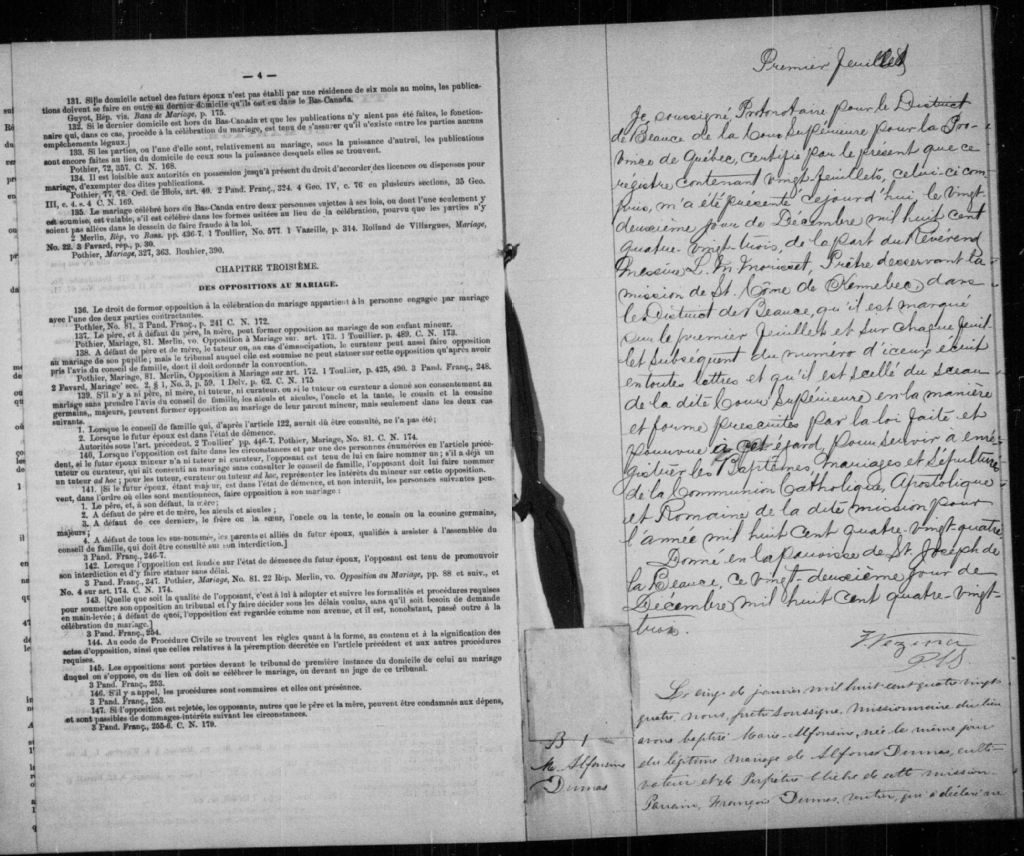 — 4 —
131. Si le domicile actuel des futurs époux n'est pas établi par une résidence de six mois au moins, les publica-
tions doivent se faire en outre au dernier domicile qu'ils ont eu dans le Bas-Canada.
Guyot, Rép. vis. Bans de Mariage, p. 175.
132. Si le dernier domicile est hors du Bas-Canada et que les publications n'y aient pas été faites, le fonction-
naire qui, dans ce cas, procède à la célébration du mariage, est tenu de s'assurer qu'il n'existe entre les parties aucuns
empêchements légaux.
133. Si les parties, ou l'une d'elle sont, relativement au mariage, sous la puissance d'autrui, les publications
sont encore faites au lieu du domicile de ceux sous la puissance desquels elles se trouvent.
Pothier, 72, 357. C. N. 168.
134. Il est loisible aux autorités en possession jusqu'à présent du droit d'accorder des licences ou dispenses pour
mariage, d'exempter des dites publications.
Pothier, 77, 78. Ord. de Blois, art. 40. 2 Pand. Franç., 324. 4 Geo. IV, c. 76 en plusieurs sections, 35 Geo.
III, c. 4. s. 4 C. N. 169.
135. Le mariage célébré hors du Bas-Canda entre deux personnes sujettes à ses lois, ou dont l'une seulement y
est soumise, est valable, s'il est célébré dans les formes usitées au lieu de la célébration, pourvu que les parties n'y
soient pas allées dans le dessein de faire fraude à la loi.
2 Merlin, Rép, vo Bans. pp. 436-7. 1 Toullier, No. 577. 1 Vazeille, p. 314. Rolland de Villargues, Mariage,
No. 22. 3 Favard, rép., p. 30.
Pothier, Mariage, 327, 363. Bouhier, 390.
CHAPITRE TROISIÈME.
DES OPPOSITIONS AU MARIAGE.
136. Le droit de former opposition à la célébration du mariage appartient à la personne engagée par mariage
avec l'une des deux parties contractantes.
Pothier, No. 81, 3 Pand. Franç., p. 241 C. N. 172.
137. Le père, et à défaut du père, la mère, peut former opposition au mariage de son enfant mineur.
Pothier, Mariage, 81. Merlin, vo. Opposition à Mariage sur. art. 173. 1 Touillier. p. 489. C. N. 173.
138. A défaut de père et de mère, le tuteur ou, au cas d'émancipation, le curateur peut aussi faire opposition
au mariage de son pupille; mais le tribunal auquel elle est soumise ne peut statuer sur cette opposition qu'après avoir
pris l'avis du conseil de famille, dont il doit ordonner la convocation.
Pothier, Mariage, 81. Merlin, Opposition à Mariage sur art. 172. 1 Toulier, p. 425, 490. 3 Pand. Franç., 248.
2 Favard, Mariage' sec. 2. § 1, No. 3, p. 59. 1 Delv. p. 62. C. N. 175
139. S'il n'y a ni père, ni mère, ni tuteur, ni curateur, ou si le tuteur ou curateur a donné son consentement au
mariage sans prendre l'avis du conseil de famille, les aieuls et aieules, l'oncle et la tante, le cousin et la cousine
germains, majeurs, peuvent former opposition au mariage de leur parent mineur, mais seulement dans les deux cas
suivants.
1. Lorsque le conseil de famille qui, d'après l'article 122, aurait dû être consulté, ne l'a pas été;
2. Lorsque le futur époux est dans l'état de démence.
Autorités sous l'art. précédent. 2 Toulier' pp. 446-7, Pothier, Mariage, No. 81. C. N. 174.
140. Lorsque l'opposition est faite dans les circonstances et par une des personnes énumérées en l'article précé-
dent, si le futur époux mineur n'a ni tuteur ni curateur, l'opposant est tenu de lui en faire nommer un; s'il a déjà un
tuteur ou curateur, qui ait consenti au mariage sans consulter le conseil de famille, l'opposant doit lui faire nommer
un tuteur ad hoc; pour les tuteur, curateur ou tuteur ad hoc, représenter les intérêts du mineur sur cette opposition.
141. [Si le futur époux, étant majeur, est dans l'état de démence, et non interdit, les personnes suivantes peu-
vent, dans l'ordre où elles sont mentionnées, faire opposition à son mariage:
1. Le père, et, à son défaut, la mère;
2. A défaut de père et de mère, les aieuls et aieules;
3. A défaut de ces derniers, le frère ou la sœur, l'oncle ou la tente, le cousin ou la cousine germains,
majeurs;
4. A défaut de tous les sus-nommés, les parents et alliés du futur époux, qualifiés à assister à l'assemblée du
conseil de famille, qui doit être consulté sur son interdiction.]
3 Pand. Franç., 246-7.
142. Lorsque l'opposition est fondée sur l'état de démence du futur époux, l'opposant est tenu de promouvoir
son interdiction et d'y faire statuer sans délai.
3 Pand. Franç., 247. Pothier, Mariage, No. 81. 22 Rép. Merlin, vo. Opposition au Mariage, pp. 88 et suiv., et
No. 4 sur art. 174. C. N. 174.
143. [Quelle que soit la qualité de l'opposant, c'est à lui à adopter et suivre les formalités et procédures requises
pour soumettre son opposition au tribunal et l'y faire décider sous les délais voulus, sans qu'il soit besoin de demande
en main-levée; à défaut de quoi, l'opposition est regardée comme non avenue, et il est, nonobstant, passé outre à la
célébration du mariage.]
3 Pand. Franç., 254.
144. Au code de Procédure Civile se trouvent les règles quant à la forme, au contenu et à la signification des
actes d'opposition, ainsi que celles relatives à la péremption décrétée en l'article précédent et aux autres procédures
requises.
145. Les oppositions sont portées devant le tribunal de première instance du domicile de celui au mariage
duquel on s'oppose, ou du lieu où doit se célébrer le mariage, ou devant un juge de ce tribunal.
3 Pand. Franç., 253.
146. S'il y a appel, les procédures sont sommaires et elles ont présénce.
3 Pand. Franç., 253.
147. Si l'opposition est rejetée, les opposants, autres que le père et la mère, peuvent être condamnés aux dépens,
et sont passibles de dommages-intérêts suivant les circonstances.
3 Pand. Franç., 255-6. C. N. 179.
Premier feuillet
Je, soussigné, Protonotaire pour le District
de Beauce de la Cour Supérieure pour la Pro-
vince de Québec, certifie par le présent que ce
régistre contenant vingt-feuillets, celui-ci com-
pris, m'a été présenté cejourd'hui le vingt
deuxième jour de Décembre mil huit cent
quatre-vingt-trois, de la part du Révérend
Messire L. M. Morisset, Prêtre desservant la
mission de St. Côme de Kennebec, dans
le District de Beauce, qu'il est marqué
sur le premier feuillet et sur chaque feuil-
let subséquent du numéro d'iceux écrit
en toutes lettres et qu'il est scellé du sceau
de la dite Cour Supérieure en la manière
et forme prescrites par la loi faite et
pourvue à cet égard, pour servir à enré-
gistrer les Baptêmes, mariages et Sépultures
de la Communion Catholique, Apostolique
et Romaine de la dite mission pour
l'année mil huit cent quatre-vingt-quatre
Donné en la paroisse de St. Joseph de
la Beauce, ce vingt-deuxième jour de
Décembre mil huit cent quatre-vingt-
trois.
P.C.S.
B 1
M. Alfonsine
Dumas
Le cinq de janvier mil huit cent quatre vingt
quatre, nous, prêtre soussigné, missionnaire du lieu
avons baptisé Marie-Alfonsine, née le même jour
du légitime mariage de Alfonse Dumas, culti-
vateur et de Perpétue Cliche de cette mission.
Parrain, François Dumas, rentier, qui a déclaré ne